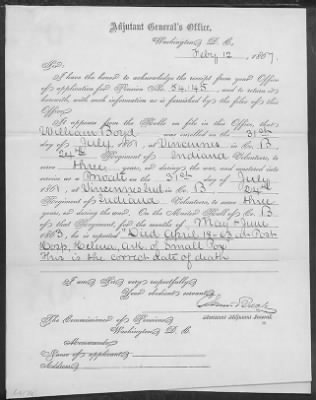 Adjutant General's Office,
Washington, D. C.,
Feby 12, 1867.
Sir:
I have the honor to acknowledge the receipt from your Office
of application for Pension No. 54.145, and to return it
herewith, with such information as is furnished by the files of this
Office.
It appears from the Rolls on file in this Office, that
William Boyd was enrolled on the 31st
day of July, 1861, at Vincennes in Co. B,
24th Regiment of Indiana Volunteers, to
serve three years, or during the war, and mustered into
service as a on the 31st day of July,
1861, at Vincennes Ind, in Co. B, 24th
Regiment of Indiana Volunteers, to serve three
years, or during the war. On the Muster Roll of Co. B
of that Regiment, for the months of May & June,
1863, he is reported "Died April 18-63 at Post
Hosp, Helena, Ark. of Small Pox
This is the correct date of death
I am, Sir, very respectfully,
Your obedient servant,
Assistant Adjutant General.
The Commissioner of Pensions,
Washington, D. C.
Memoranda:
Name of applicant,
Address,